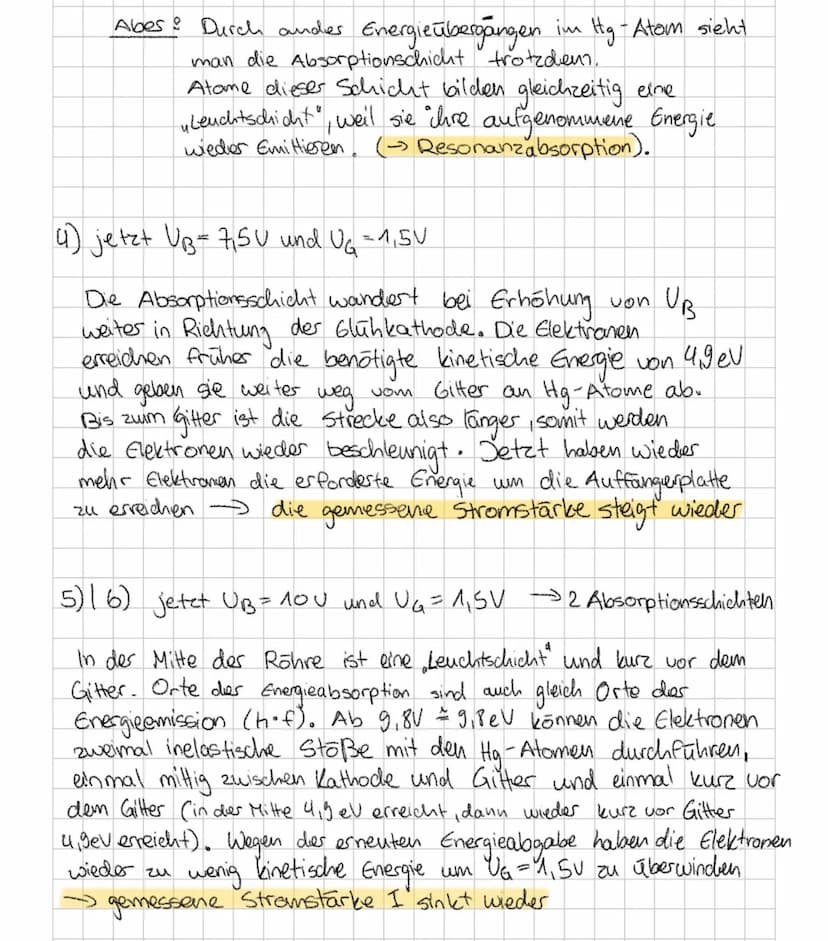 Aber: Durch andere Energieübergängen im Hg-Atom sieht
man die Absorptionschicht trotzdem.
Atome dieser Schicht bilden gleichzeitig eine
„Leuchtschicht", weil sie ihre aufgenommene Energie
wieder Emittieren. (→ Resonanzabsorption).
4) jetzt UB = 7,5V und UG = 1,5V
Die Absorptionsschicht wandert bei Erhöhung von UB
weiter in Richtung der Glühkathode. Die Elektronen
erreichen früher die benötigte kinetische Energie von 4,9eV
und geben sie weiter weg vom Gitter an Hg-Atome ab.
Bis zum Gitter ist die Strecke also länger, somit werden
die Elektronen wieder beschleunigt. Jetzt haben wieder
mehr Elektronen die erforderte Energie um die Auffängerplatte
zu erreichen → die gemessene Stromstärke steigt wieder
5)/6) jetzt UB = 10V und UG = 1,5V → 2 Absorptionsschichten
In der Mitte der Röhre ist eine „Leuchtschicht" und kurz vor dem
Gitter. Orte der Energieabsorption sind auch gleich Orte der
Energieemission (h·f). Ab 9,8V ≙ 9,8eV können die Elektronen
zweimal inelastische Stöße mit den Hg-Atomen durchführen,
einmal mittig zwischen Kathode und Gitter und einmal kurz vor
dem Gitter (in der Mitte 4,9 eV erreicht, dann wieder kurz vor Gitter
4,9eV erreicht). Wegen der erneuten Energieabgabe haben die Elektronen
wieder zu wenig kinetische Energie um UG = 1,5V zu überwinden
→ gemessene Stromstärke I sinkt wieder